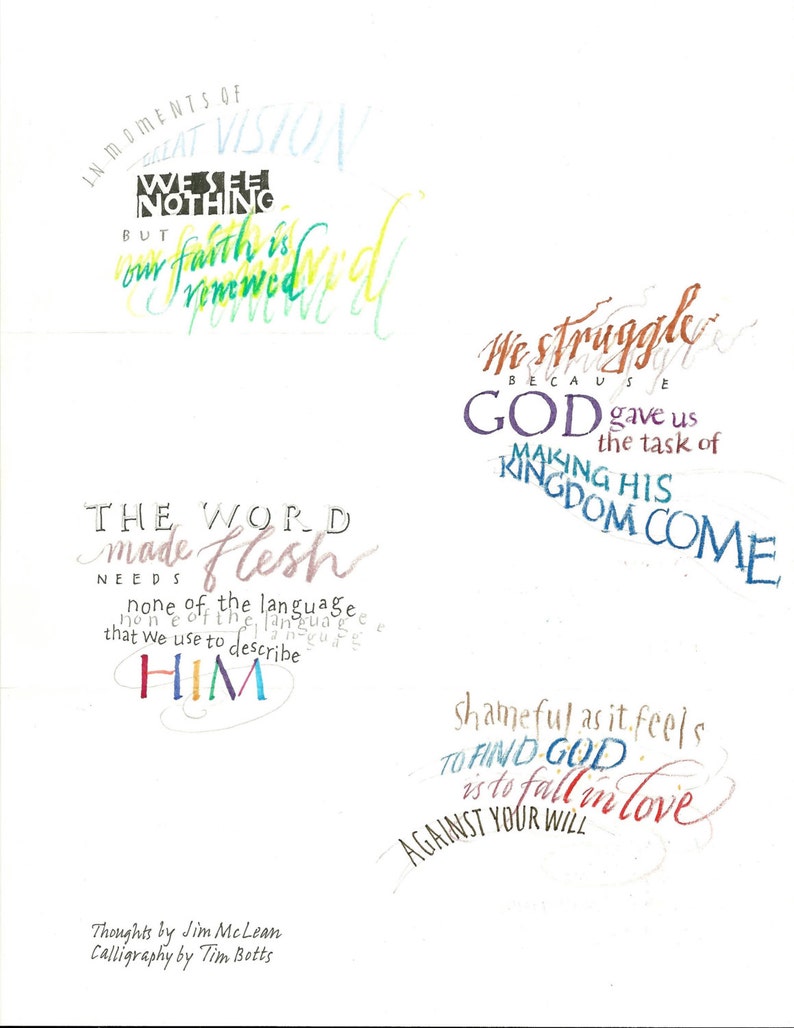 IN MOMENTS OF
GREAT VISION
WE SEE
NOTHING
BUT
our faith is
renewed
We struggle
BECAUSE
GOD gave us
the task of
MAKING HIS
KINGDOM COME
THE WORD
made flesh
NEEDS
none of the language
none of the language
that we use to describe
language
HIM
shameful as it feels
TO FIND GOD
is to fall in love
AGAINST YOUR WILL
Thoughts by Jim McLean
Calligraphy by Tim Botts